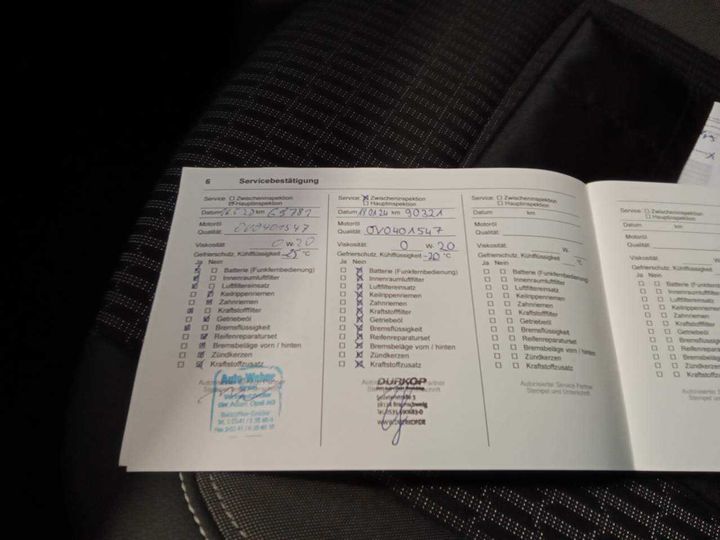 6 Servicebestätigung
Service: Zwischeninspektion
Hauptinspektion
Datum km 65781
Motoröl
Qualität: OV0401547
Viskosität 0 W. 20
Gefrierschutz, Kühlflüssigkeit -25 °C
Ja Nein
Batterie (Funkfernbedienung)
Innenraumluftfilter
Luftfiltereinsatz
Keilrippenriemen
Zahnriemen
Kraftstofffilter
Getriebeöl
Bremsflüssigkeit
Reifenreparaturset
Bremsbeläge vorn / hinten
Zündkerzen
Kraftstoffzusatz
Auto-Weber
Service: Zwischeninspektion
Hauptinspektion
Datum 18.01.24 km 90321
Motoröl
Qualität: OV0401547
Viskosität 0 W. 20
Gefrierschutz, Kühlflüssigkeit -20 °C
Ja Nein
Batterie (Funkfernbedienung)
Innenraumluftfilter
Luftfiltereinsatz
Keilrippenriemen
Zahnriemen
Kraftstofffilter
Getriebeöl
Bremsflüssigkeit
Reifenreparaturset
Bremsbeläge vorn / hinten
Zündkerzen
Kraftstoffzusatz
DÜRKOP
Braunschweig
Service: Zwischeninspektion
Hauptinspektion
Datum km
Motoröl
Qualität:
Viskosität W.
Gefrierschutz, Kühlflüssigkeit °C
Ja Nein
Batterie (Funkfernbedienung)
Innenraumluftfilter
Luftfiltereinsatz
Keilrippenriemen
Zahnriemen
Kraftstofffilter
Getriebeöl
Bremsflüssigkeit
Reifenreparaturset
Bremsbeläge vorn / hinten
Zündkerzen
Kraftstoffzusatz
Autorisierter Service Partner
Stempel und Unterschrift
Service: Zwischeninspektion
Hauptinspektion
Datum km
Motoröl
Qualität:
Viskosität
Gefrierschutz, Kühlflüssigkeit
Ja Nein
Batterie (Funkfernbedienung)
Innenraumluftfilter
Luftfiltereinsatz
Keilrippenriemen
Zahnriemen
Kraftstofffilter
Getriebeöl
Bremsflüssigkeit
Reifenreparaturset
Bremsbeläge vorn
Zündkerzen
Kraftstoffzusatz